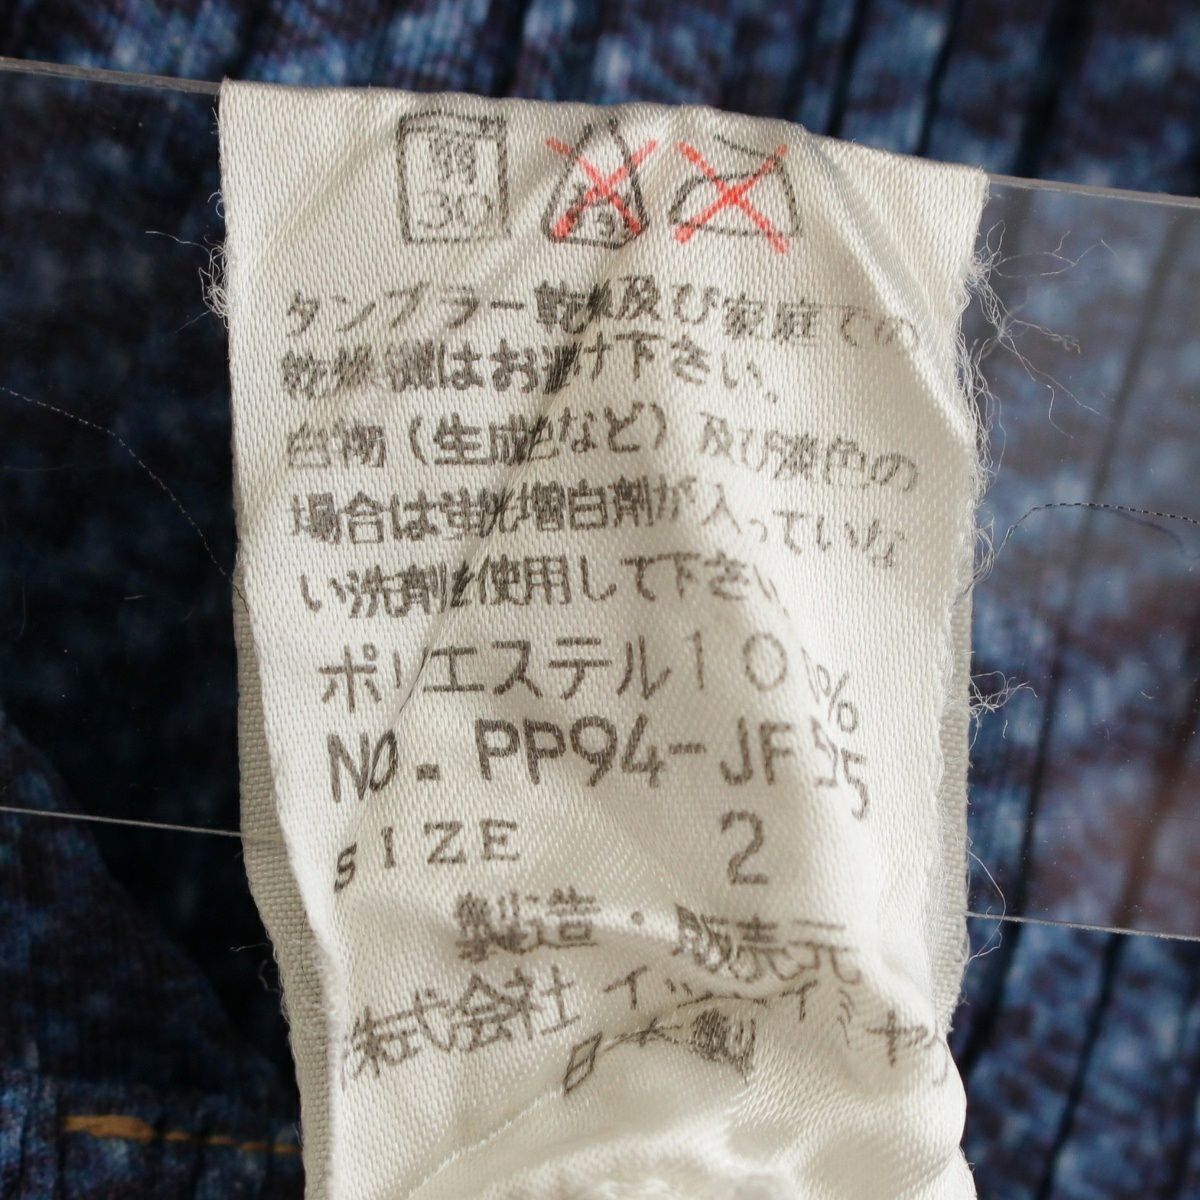 弱
30
タンブラー乾燥及び家庭での
乾燥機はお避け下さい。
白物（生成色など）及び淡色の
場合は蛍光増白剤が入っていな
い洗剤を使用して下さい
ポリエステル100%
NO. PP94-JF
SIZE 2
製造・販売元
株式会社イッセイミヤケ
日本製